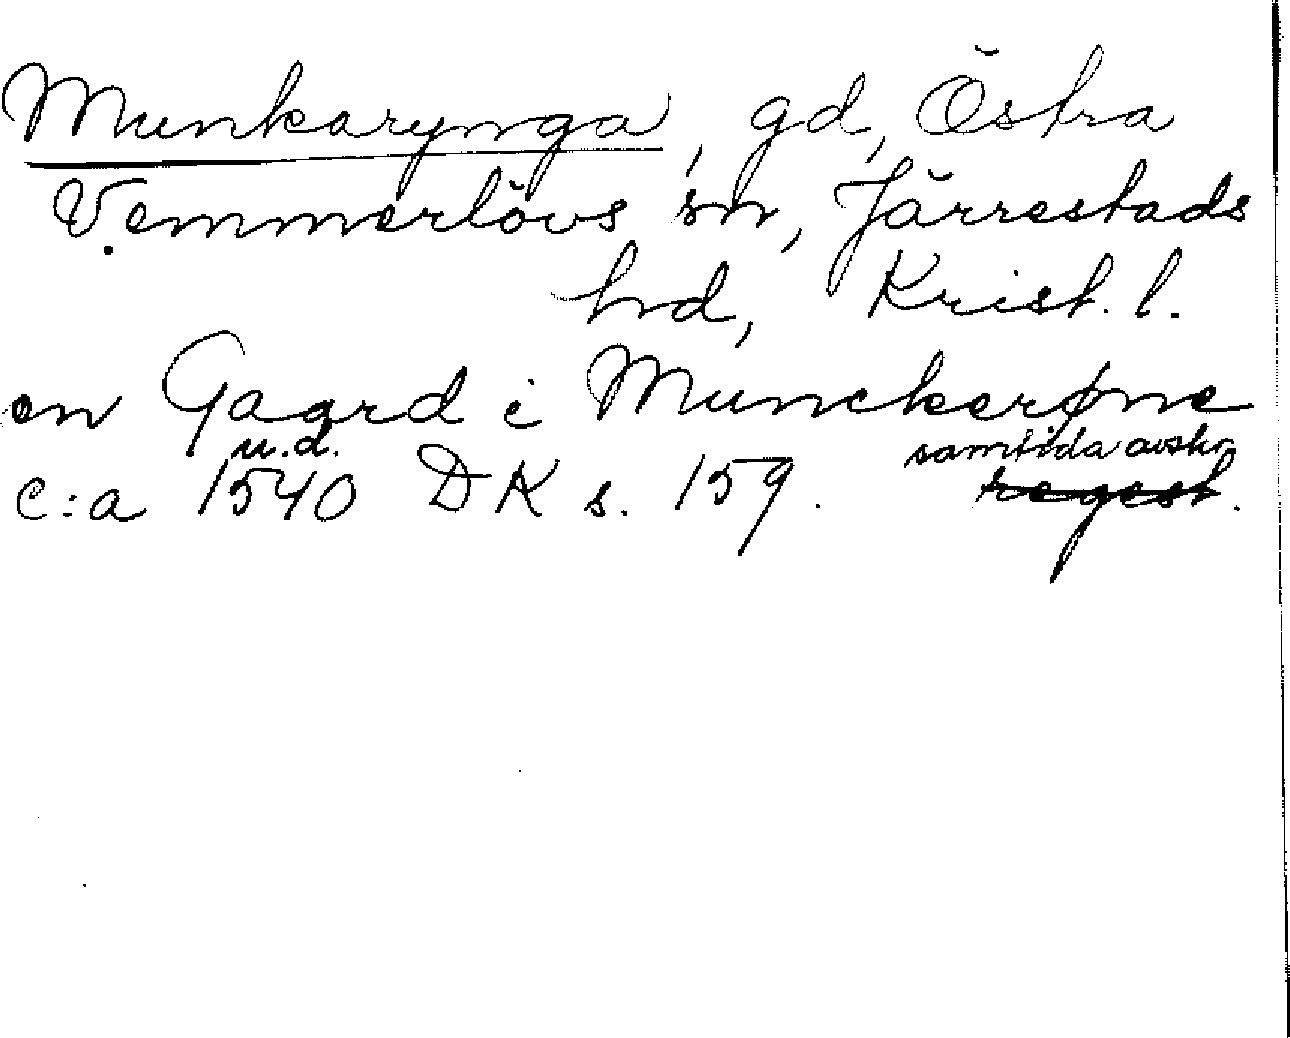 Munkarynga, gd, Östra
Vemmerlövs sn, Järrestads
hd, Krist. l.
en Gaard i Munckerøne
u.d. samtida avskr.
c:a 1540 DK s. 159. regest.